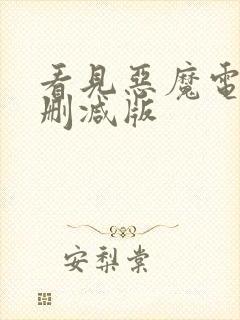 看見惡魔電
刪減版
安梨棠